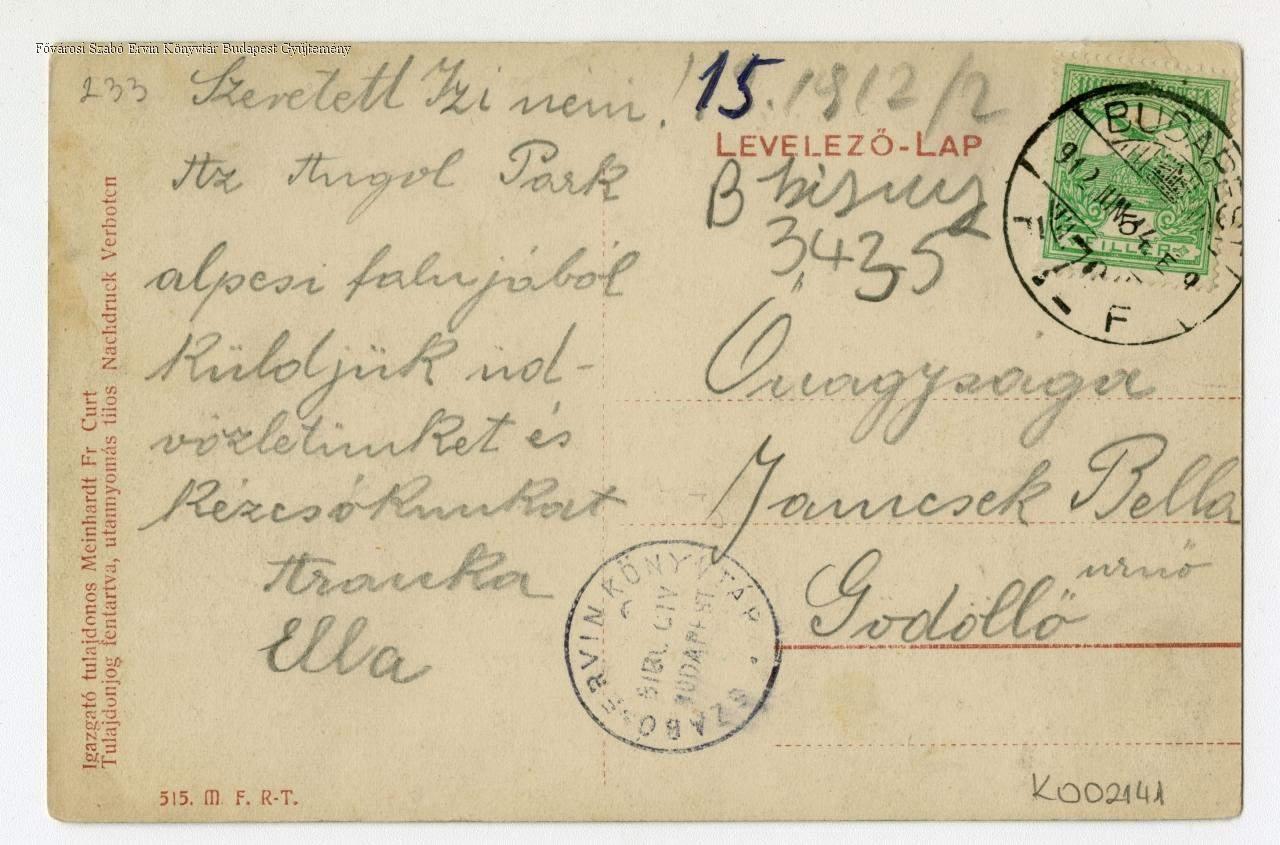 Fővárosi Szabó Ervin Könyvtár Budapest Gyűjtemény
233
Szeretett Izi néni!
Az Angol Park
alpesi falujából
küldjük üd-
vözletünket és
kézcsókunkat
Aranka
Ella
15. 1912/2
LEVELEZŐ-LAP
B
3435
BUDAPEST
912 JUN
F
FILLÉR
Őnagysága
Jamcsek Bella
urnő
Gödöllő
SZABÓ ERVIN KÖNYVTÁR
BIBL. CIV
BUDAPEST
Igazgató tulajdonos Meinhardt Fr Curt
Tulajdonjog fentartva, utannyomás tilos Nachdruck Verboten
515. M. F. R-T.
K002141